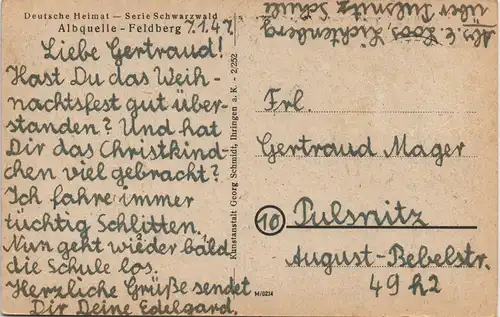 Deutsche Heimat — Serie Schwarzwald
Albquelle - Feldberg
7.1.47.
Liebe Gertraud!
Hast Du das Weih-
nachtsfest gut über-
standen? Und hat
Dir das Christkind-
chen viel gebracht?
Ich fahre immer
tüchtig Schlitten.
Nun geht wieder bald
die Schule los.
Herzliche Grüße sendet
Dir Deine Edelgard.
Kunstanstalt Georg Schmidt, Ihringen a. K. - 2/252
Abs. E. Loos, Lichtenberg
über Pulsnitz Schule
Frl.
Gertraud Mager
10 Pulsnitz
August-Bebelstr.
49 h2
M/0214